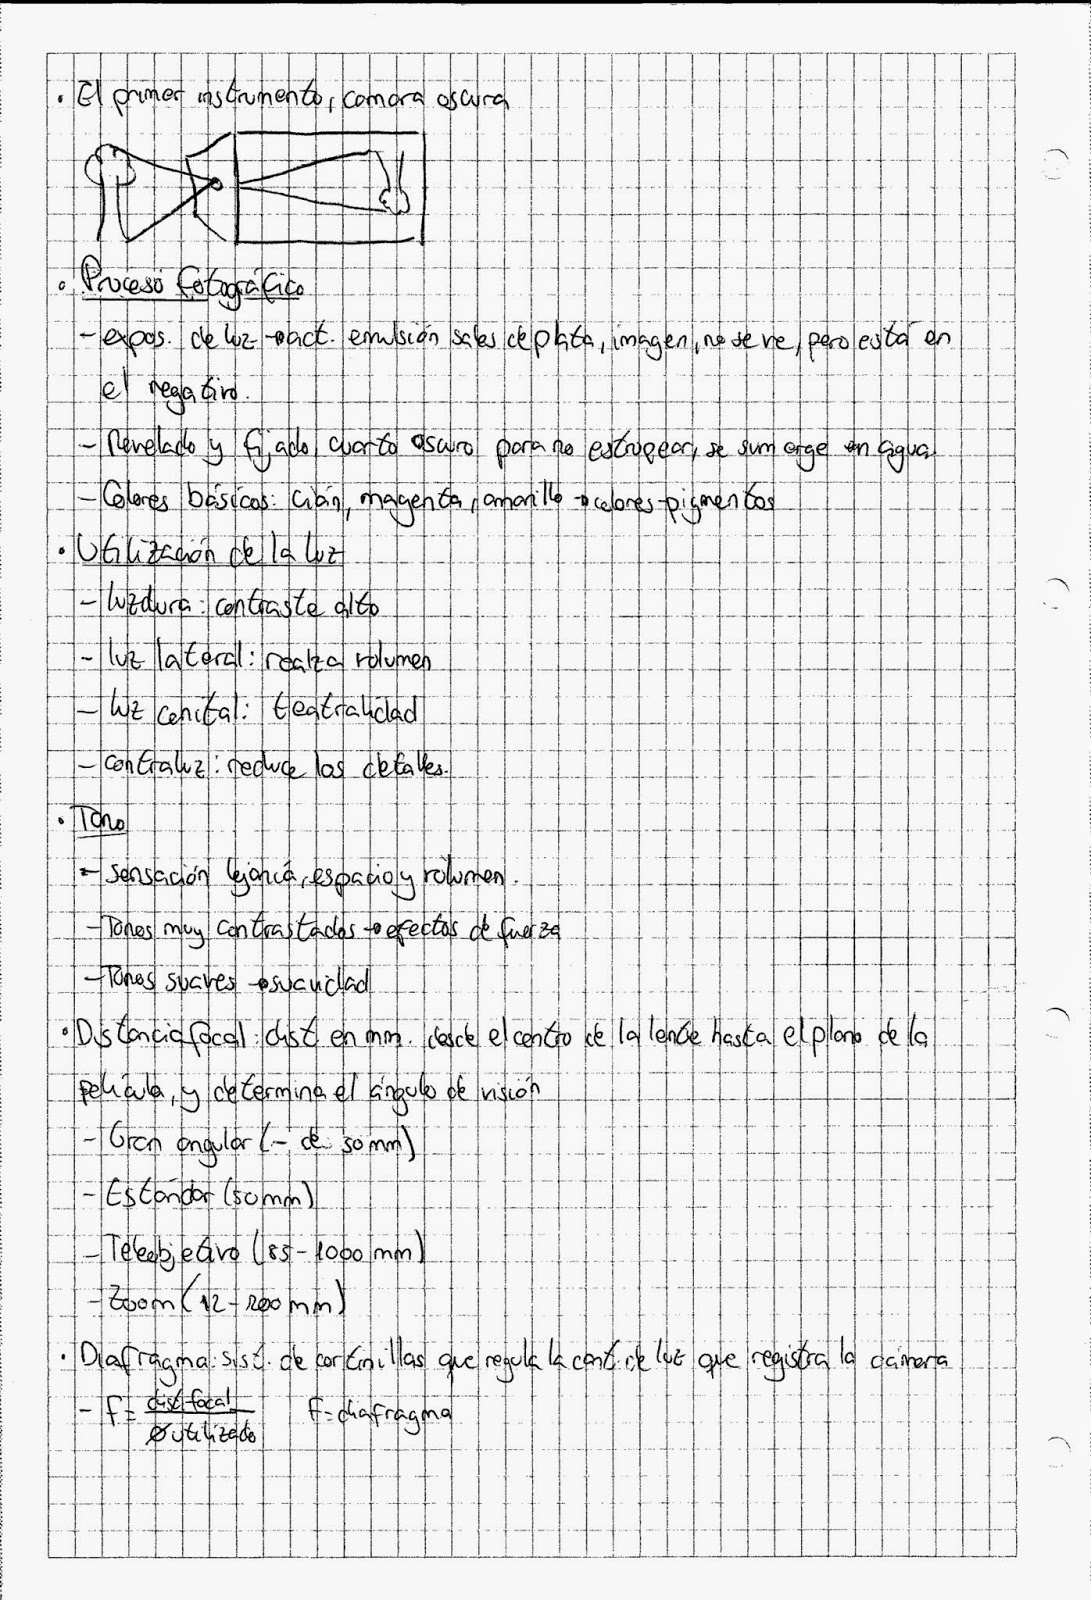 · El primer instrumento, cámara oscura
· Proceso fotográfico
- expos. de luz → act. emulsión sales de plata, imagen, no se ve, pero está en
el negativo.
- Revelado y fijado, cuarto oscuro para no estropear, se sumerge en agua.
- Colores básicos: Cián, magenta, amarillo → colores-pigmentos
· Utilización de la luz
- luz dura: contraste alto
- luz lateral: realza volumen
- luz cenital: teatralidad
- contraluz: reduce los detalles.
· Tono
- sensación lejanía, espacio y volumen.
- Tonos muy contrastados → efectos de fuerza
- Tonos suaves → suavidad
· Distancia focal: dist. en mm. desde el centro de la lente hasta el plano de la
película, y determina el ángulo de visión
- Gran angular (- de 50mm)
- Estándar (50mm)
- Teleobjetivo (85-1000 mm)
- Zoom (12-200mm)
· Diafragma: sist. de cortinillas que regula la cant. de luz que registra la cámara
- f = dist. focal / Ø utilizado    f = diafragma